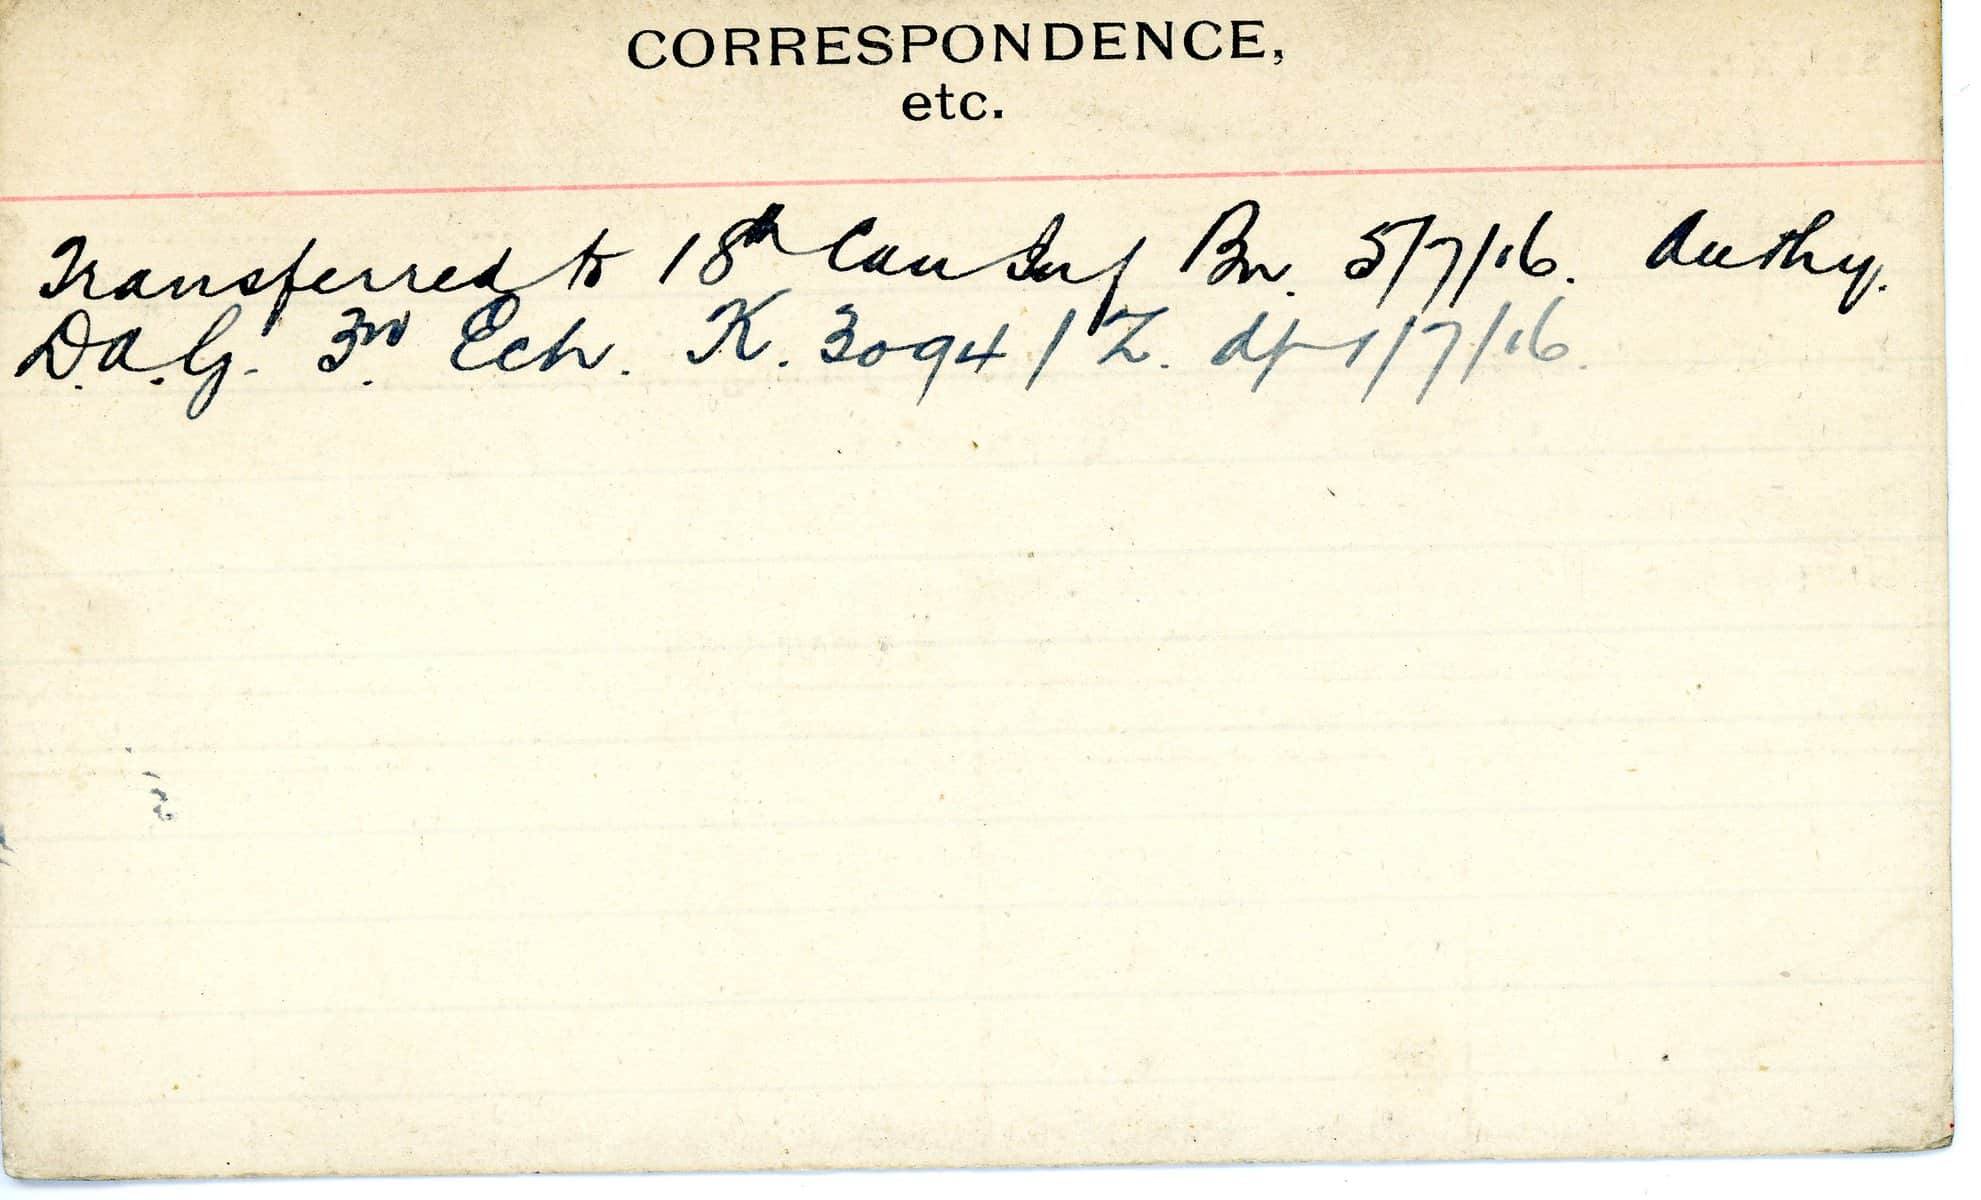 CORRESPONDENCE,
etc.
Transferred to 18th Can Inf Bn. 5/7/16. Authy.
D.A.G. 3rd Ech. K. 3094/Z. d/- 1/7/16.